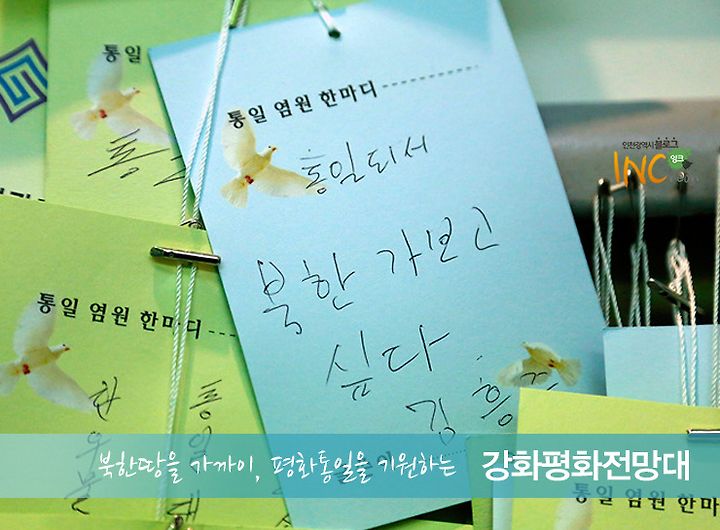 통일
통일 염원 한마디
통일되서
북한 가보고
싶다
김흥
통
통일 염원 한마디
한
통일
인천광역시블로그
INC 잉크
북한땅을 가까이, 평화통일을 기원하는 강화평화전망대
통일 염원
통일 염원 한마디